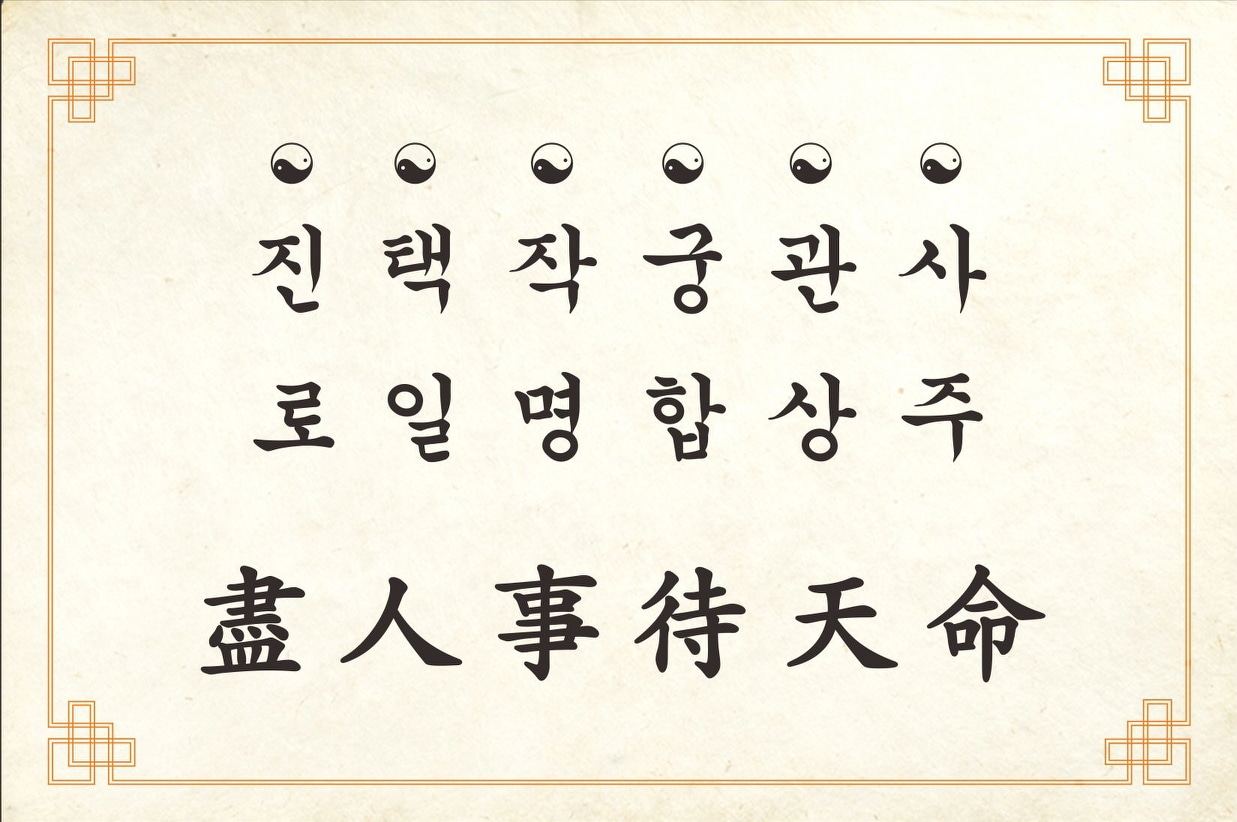 사주
관상
궁합
작명
택일
진로
盡人事待天命